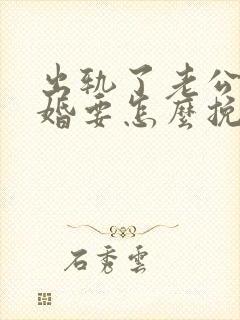 出轨了老公
婚要怎麼挽
石秀雲